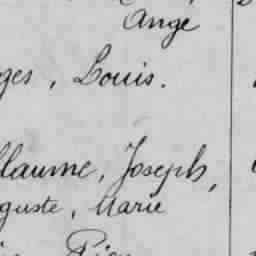 Ange
ges, Louis.
llaume, Joseph,
guste, Marie